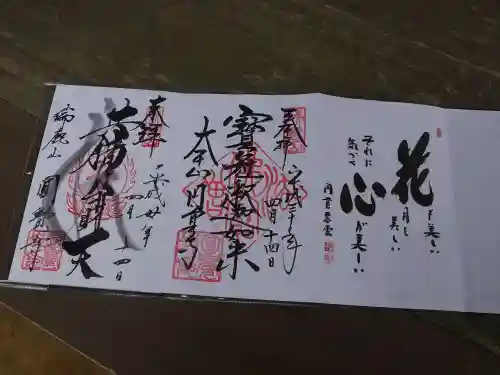 花も美しい
月も美しい
それに
気づく
心が美しい
奉拝
寶冠釈迦如来
平成二十年
四月十四日
大本山円覚寺
奉拝
大弁才天
平成廿年
四月十四日
瑞鹿山
圓覚寺